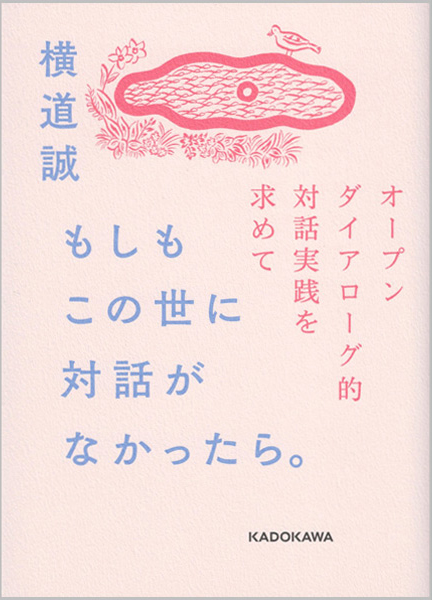 横道誠
もしも
この世に
対話が
なかったら。
オープン
ダイアローグ的
対話実践を
求めて
KADOKAWA